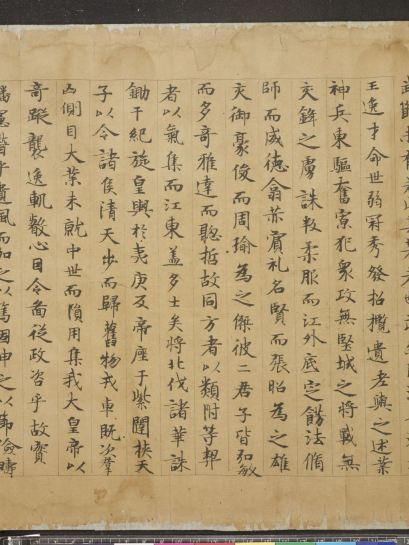 王逸才命世弱冠秀發招攬遺老與之述業
神兵東驅奮寡犯衆攻無堅城之將戰無
交鋒之虜誅叛柔服而江外底定飭法脩
師而威德翕赫賓礼名賢而張昭為之雄
交御豪俊而周瑜為之傑彼二君子皆弘敏
而多奇雅達而聰哲故同方者以類附等契
者以氣集而江東蓋多士矣將北伐諸華誅
鋤干紀旋皇輿於夷庚反帝座于紫闥挾天
子以令諸侯清天步而歸舊物戎車既次羣
凶側目大業未就中世而隕用集我大皇帝以
奇蹤襲逸軌叡心因令啚從政咨乎故實
播憲稽乎遺風而加之以篤固申之以節儉疇